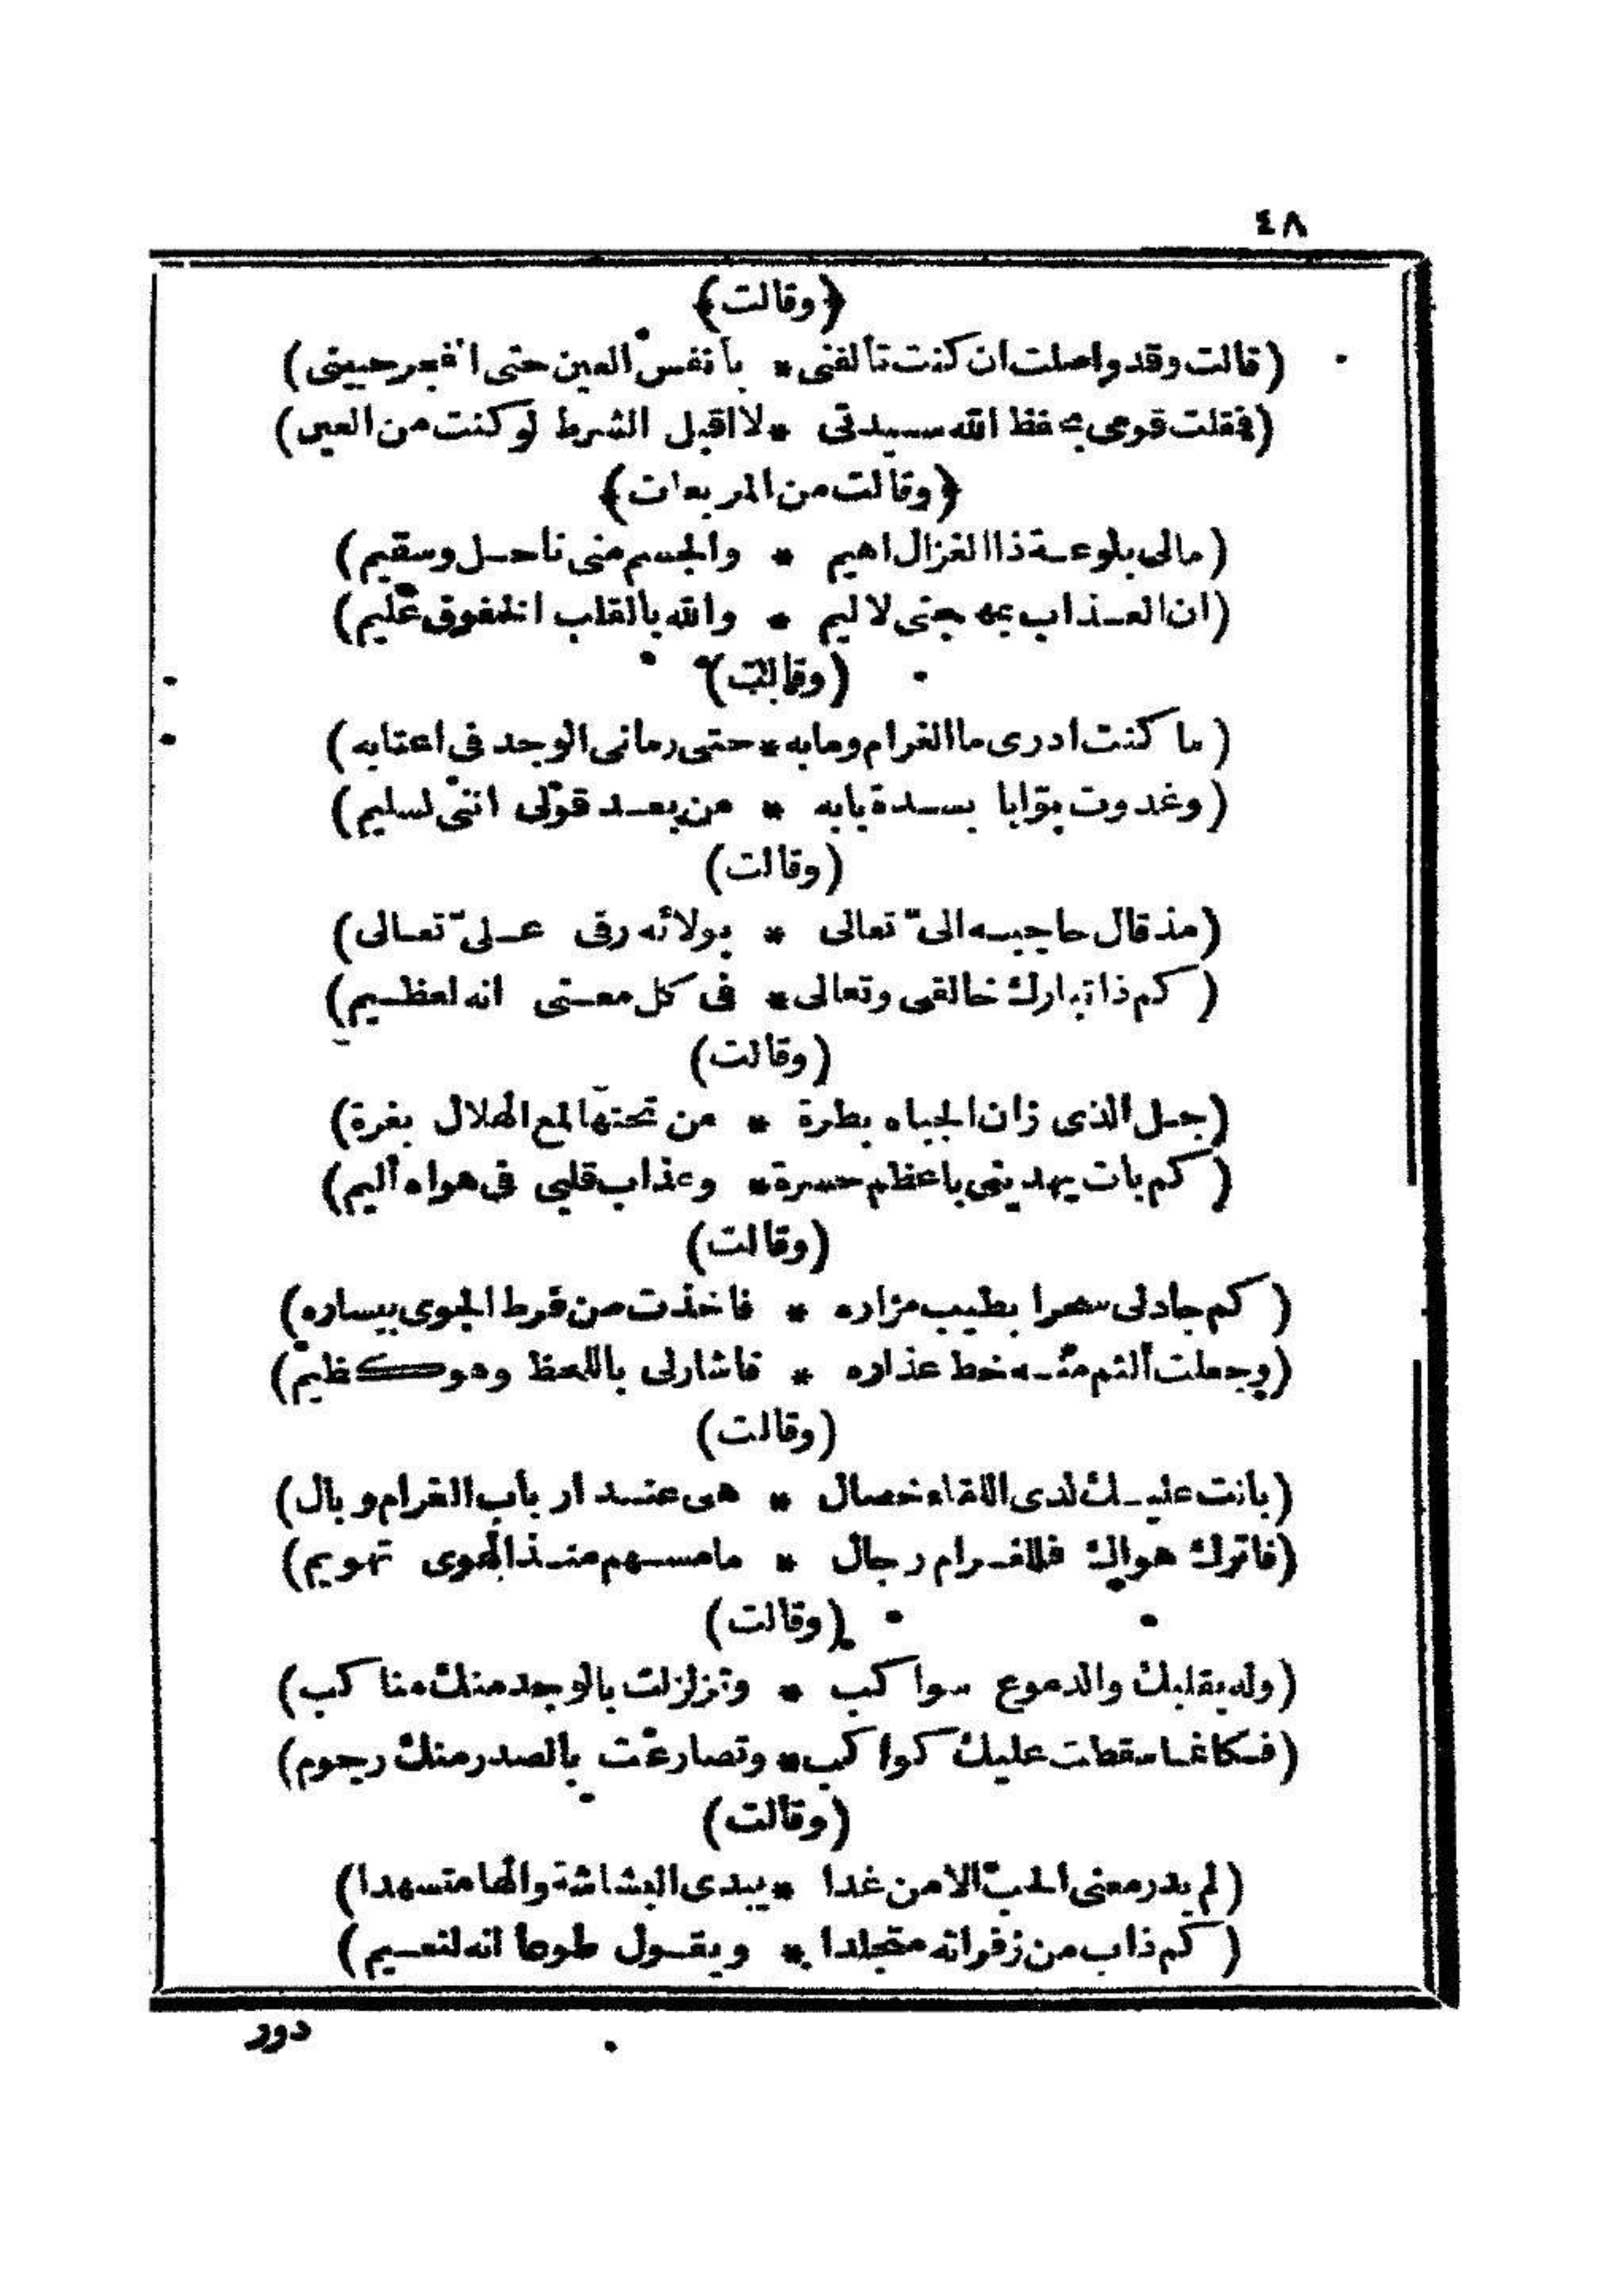 ٤٨
﴿وقالت﴾
(قالت وقد واصلت ان كنت تألفنى * بأنفس العين حتى اهجر حبيبى)
(فقلت قومى بحفظ الله سيدتى * لا اقبل الشرط لو كنت من العين)
﴿وقالت من المربعات﴾
(مالى بلوعة ذا الغزال اهيم * والجسم منى ناحل وسقيم)
(ان العذاب بمهجتى لاليم * والله بالقلب الخفوق عليم)
(وقالت)
(ما كنت ادرى ما الغرام ومابه * حتى رمانى الوجد فى اعتابه)
(وغدوت بوّابا بسدة بابه * من بعد قولى اننى لسليم)
(وقالت)
(مذ قال حاجبه الىّ تعالى * بولائه رقى علىّ تعالى)
(كم ذا تبارك خالقى وتعالى * فى كل معنى انه لعظيم)
(وقالت)
(جل الذى زان الجباه بطرة * من تحتها لمع الهلال بغرة)
(كم بات يهدينى باعظم حسرة * وعذاب قلبى فى هواه أليم)
(وقالت)
(كم جادلى سحرا بطيب مزاره * فاخذت من فرط الجوى بيساره)
(وجعلت ألثم منه خط عذاره * فاشارلى باللحظ وهو كظيم)
(وقالت)
(بانت عليك لدى اللقاء خصال * هى عند ارباب الغرام وبال)
(فاترك هواك فللغرام رجال * مامسهم منذ الهوى تهويم)
(وقالت)
(وله بقلبك والدموع سواكب * وتزلزلت بالوجد منك مناكب)
(فكانما سقطت عليك كواكب * وتصارعت بالصدر منك رجوم)
(وقالت)
(لم يدر معنى الحبّ الا من غدا * يبدى البشاشة والها متسهدا)
(كم ذاب من زفراته متجلدا * ويقول طوعا انه لنعيم)
دور